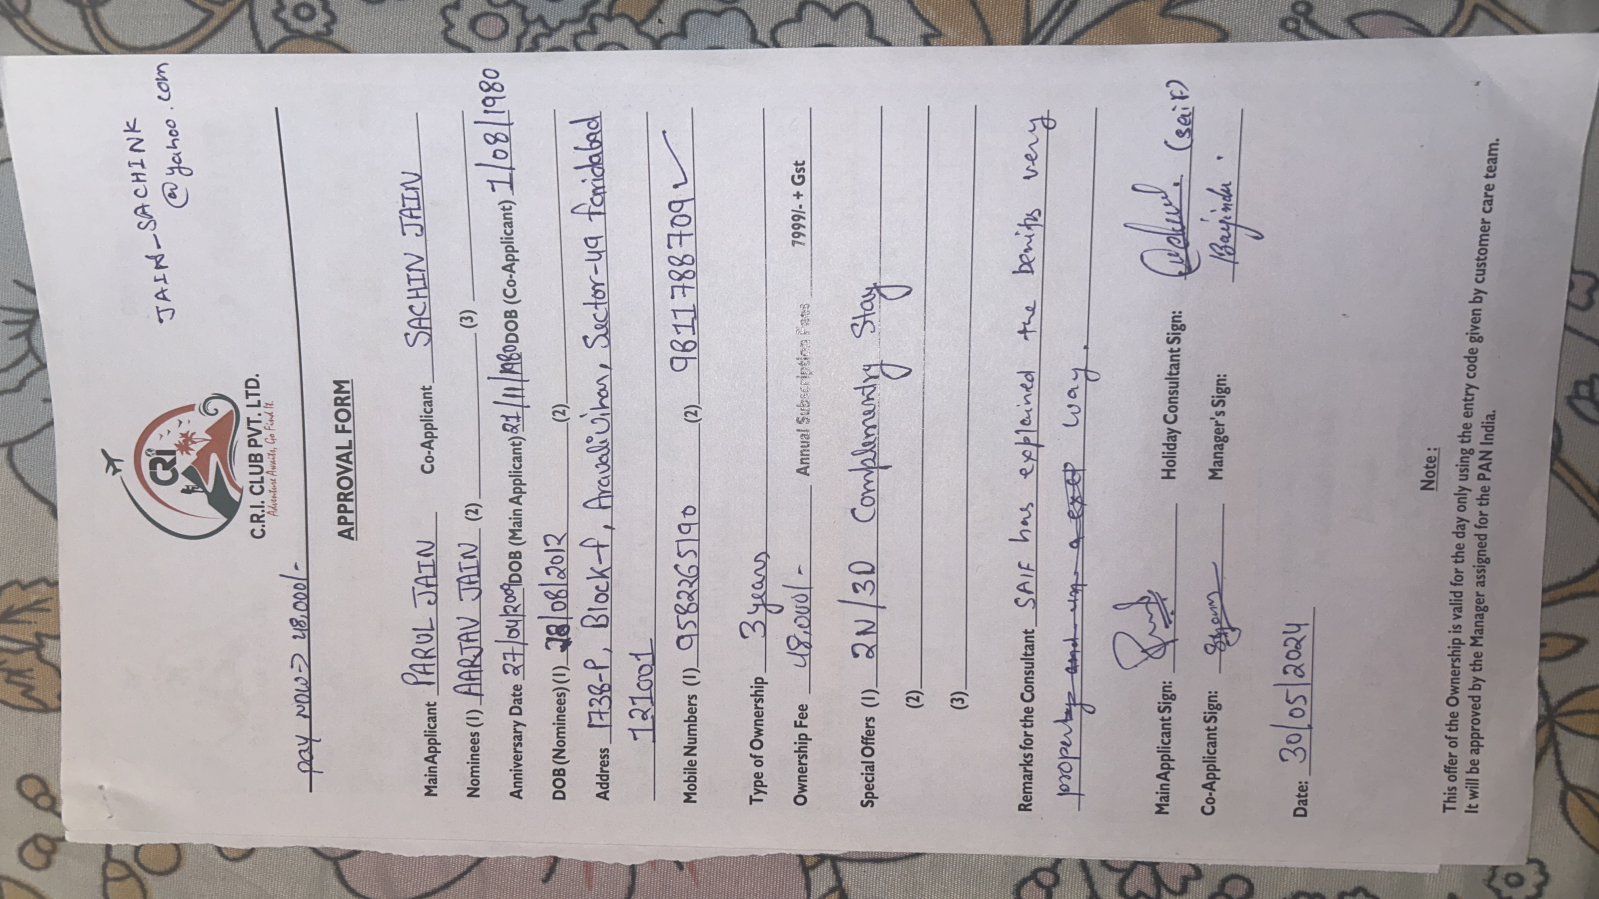 JAIN-SACHINK
@yahoo.com
CRI
C.R.I. CLUB PVT. LTD.
Adventure Awaits, Go Find It.
pay now → 48,000/-
APPROVAL FORM
Main Applicant PARUL JAIN Co-Applicant SACHIN JAIN
Nominees (1) AARJAV JAIN (2) (3)
Anniversary Date 27/04/2009 DOB (Main Applicant) 27/11/1980 DOB (Co-Applicant) 1/08/1980
DOB (Nominees) (1) 28/08/2012 (2)
Address 1738-P, Block-f, Aravali vihar, Sector-49 faridabad
121001
Mobile Numbers (1) 9582265190 (2) 9811788709 ✓
Type of Ownership 3 years
Ownership Fee 48,000/- Annual Subscription Fees 7999/- + Gst
Special Offers (1) 2N/3D Complementry Stay
(2)
(3)
Remarks for the Consultant SAIF has explained the benifits very
property way.
Main Applicant Sign: Holiday Consultant Sign: (saif)
Co-Applicant Sign: Manager's Sign:
Date: 30/05/2024
Note :
This offer of the Ownership is valid for the day only using the entry code given by customer care team.
It will be approved by the Manager assigned for the PAN India.